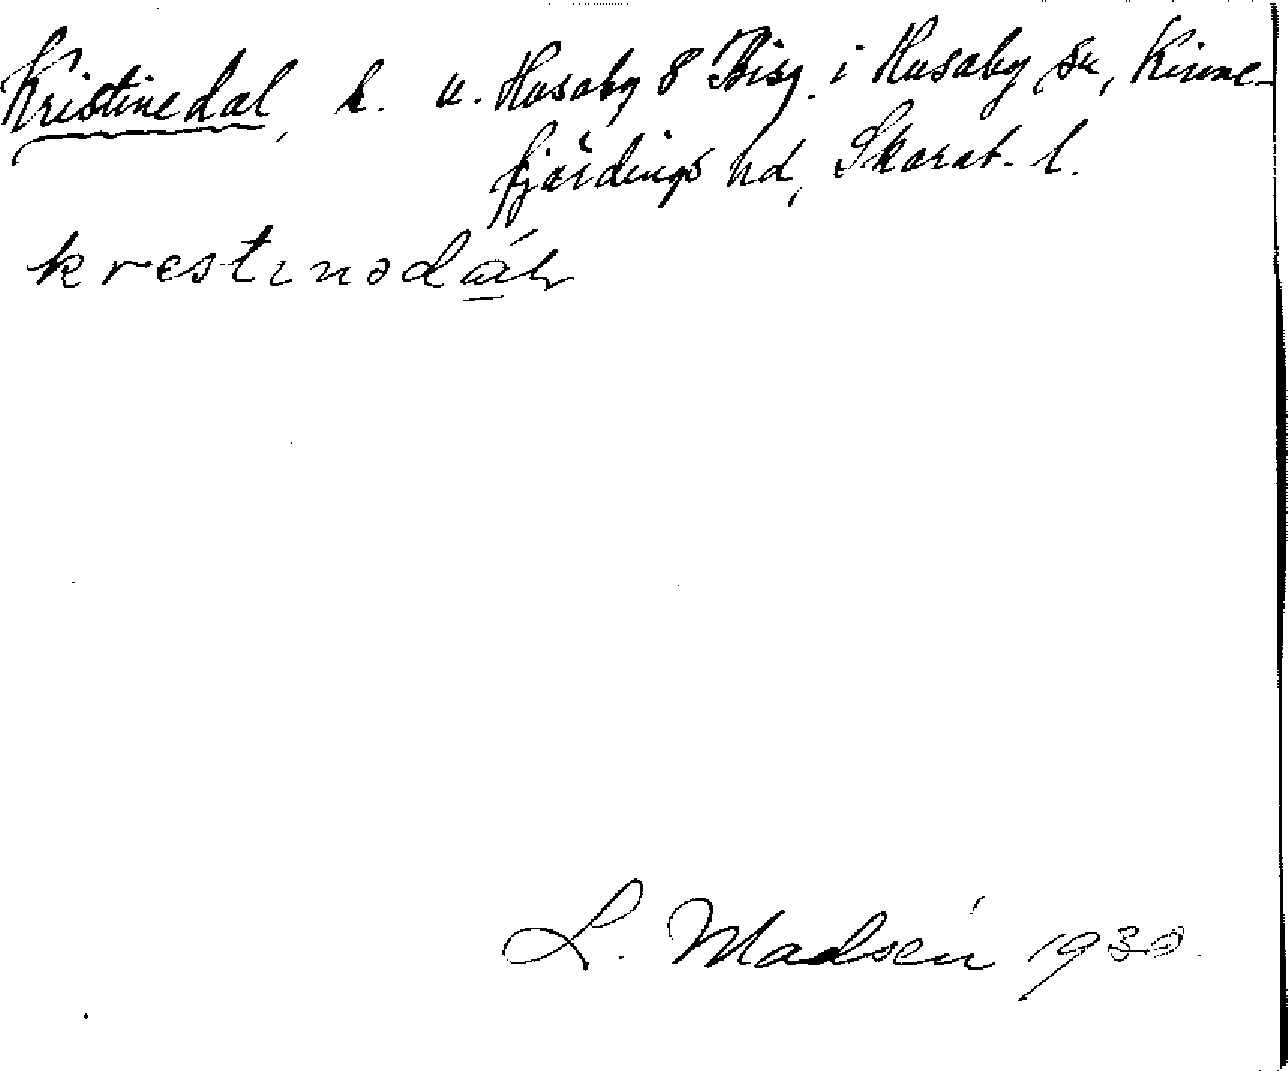 Kristinedal, h. u. Husaby 8 Bisg. i Husaby sn, Kinne-
fjärdings hd, Skarab. l.
krestɩnədál
L. Madsén 1930.